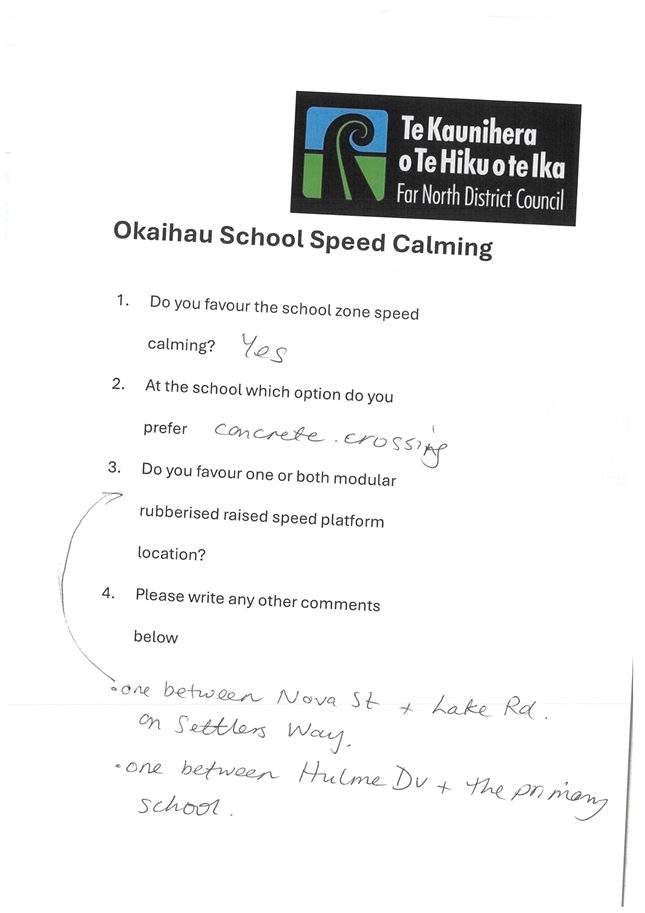 Te Kaunihera
o Te Hiku o te Ika
Far North District Council
Okaihau School Speed Calming
1. Do you favour the school zone speed
calming? Yes
2. At the school which option do you
prefer concrete crossing
3. Do you favour one or both modular
rubberised raised speed platform
location?
4. Please write any other comments
below
• one between Nova St + Lake Rd.
on Settlers Way.
• one between Hulme Dv + the primary
school.